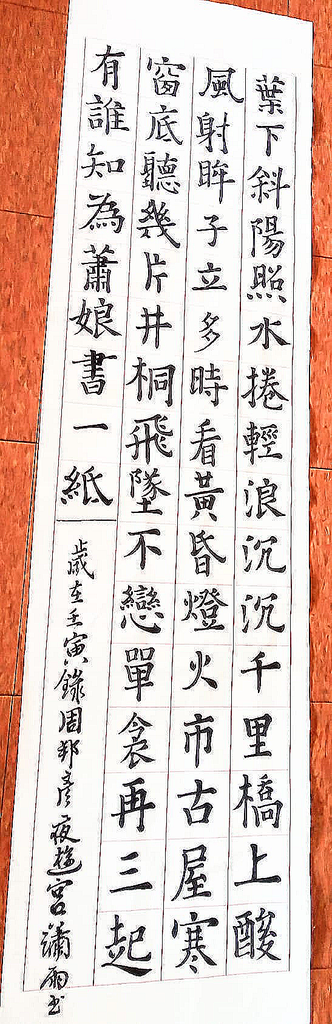 葉下斜陽照水捲輕浪沉沉千里橋上酸
風射眸子立多時看黃昏燈火市古屋寒
窗底聽幾片井桐飛墜不戀單衾再三起
有誰知為蕭娘書一紙
歲在壬寅錄周邦彥夜遊宮瀟雨书